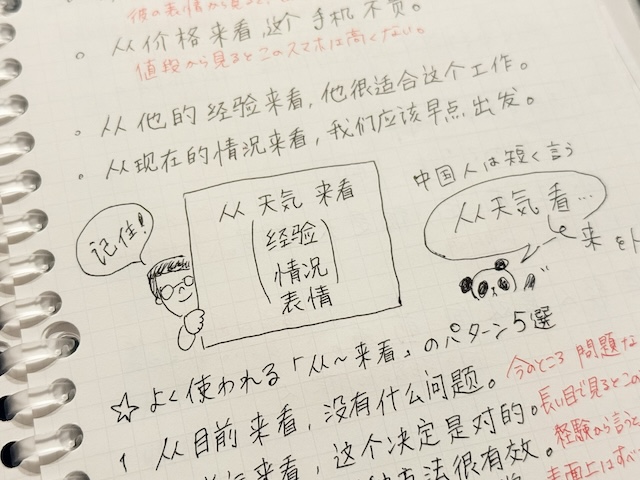 彼の表情から見ると、
。从价格来看,这个手机不贵。
値段から見るとこのスマホは高くない。
。从他的经验来看,他很适合这个工作。
。从现在的情况来看,我们应该早点出发。
记住!
从 天气 来看
经验
情况
表情
中国人は短く言う
从天气看…
来を
☆よく使われる「从~来看」のパターン5選
1 从目前来看,没有什么问题。
今のところ 問題な
来看,这个决定是对的。
長い目で見ると
方法很有效。
経験から言うと
表面上はすべ